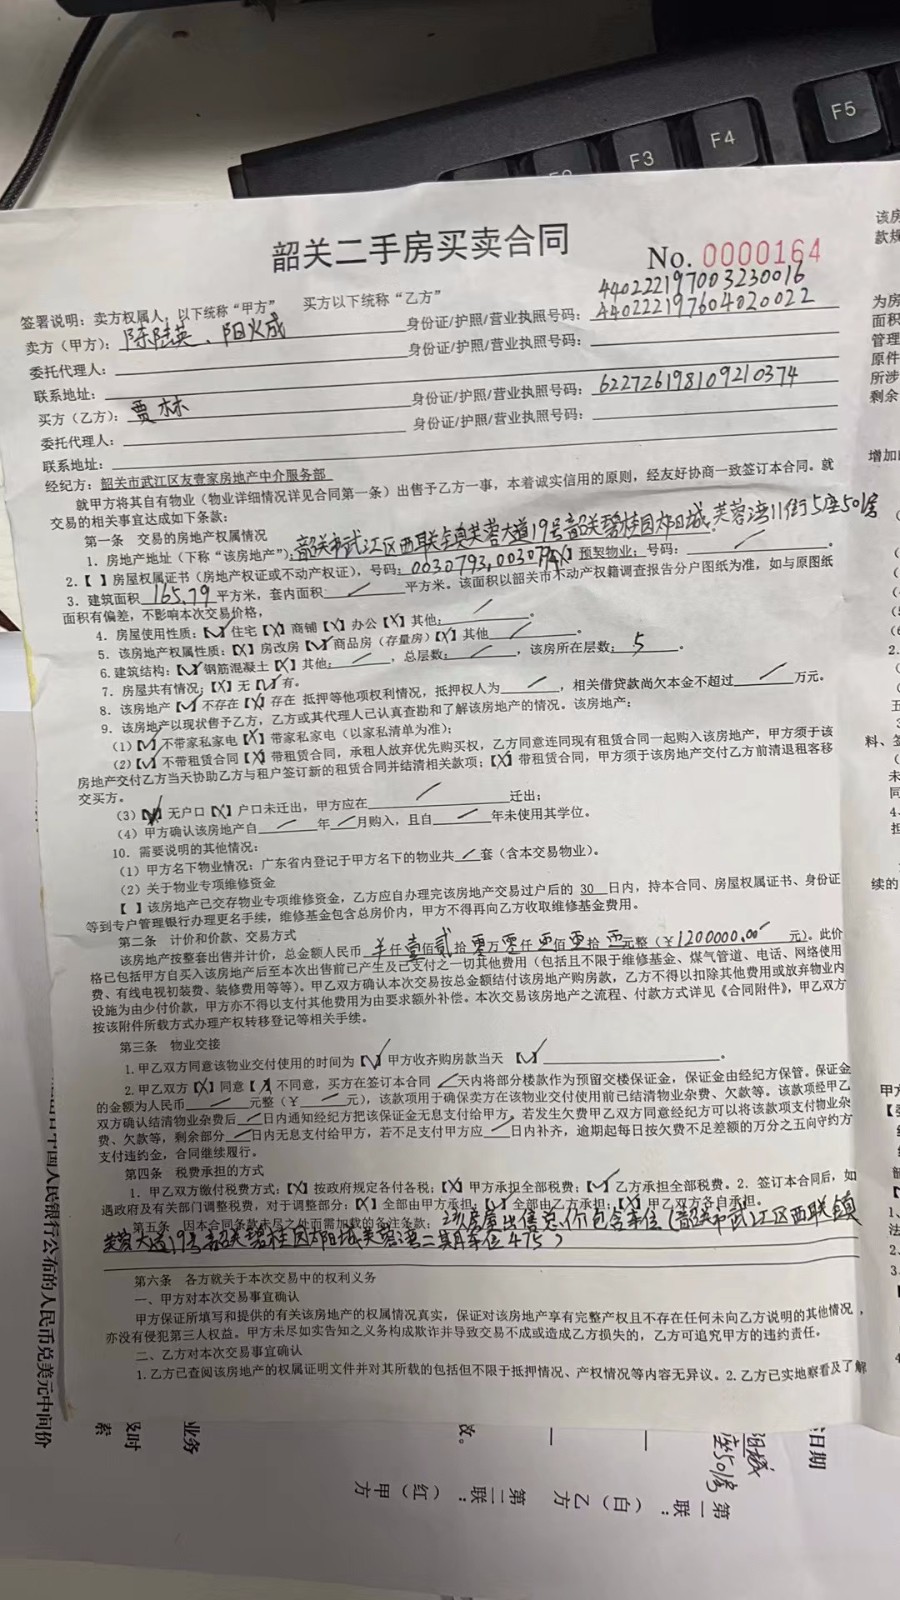 F3
F4
F5
韶关二手房买卖合同
No. 0000164
签署说明：卖方权属人，以下统称“甲方” 买方以下统称“乙方”
440222197003230016
卖方（甲方）：陈陆英、阳火成 身份证/护照/营业执照号码：440222197604020022
委托代理人： 身份证/护照/营业执照号码：
联系地址：
买方（乙方）：贾林 身份证/护照/营业执照号码：622726198109210374
委托代理人： 身份证/护照/营业执照号码：
联系地址：
经纪方：韶关市武江区友壹家房地产中介服务部
就甲方将其自有物业（物业详细情况详见合同第一条）出售予乙方一事，本着诚实信用的原则，经友好协商一致签订本合同。就
交易的相关事宜达成如下条款：
第一条 交易的房地产权属情况
1．房地产地址（下称“该房地产”）：韶关市武江区西联镇芙蓉大道19号韶关碧桂园太阳城芙蓉湾11街5座501房
2.【 】房屋权属证书（房地产权证或不动产权证），号码：0030793,0030794【X】预契物业：号码：
3．建筑面积 165.79 平方米，套内面积 / 平方米。该面积以韶关市不动产权籍调查报告分户图纸为准，如与原图纸
面积有偏差，不影响本次交易价格，
4．房屋使用性质：【√】住宅【X】商铺【X】办公【X】其他： / 。
5．该房地产权属性质：【X】房改房【√】商品房（存量房）【X】其他 / 。
6.建筑结构：【√】钢筋混凝土【X】其他： / ，总层数： / ，该房所在层数： 5 。
7．房屋共有情况：【X】无【√】有。
8．该房地产【√】不存在【X】存在 抵押等他项权利情况，抵押权人为 / ，相关借贷款尚欠本金不超过 / 万元。
9．该房地产以现状售予乙方，乙方或其代理人已认真查勘和了解该房地产的情况。该房地产：
（1）【√】不带家私家电【X】带家私家电（以家私清单为准）；
（2）【√】不带租赁合同【X】带租赁合同，承租人放弃优先购买权，乙方同意连同现有租赁合同一起购入该房地产，甲方须于该
房地产交付乙方当天协助乙方与租户签订新的租赁合同并结清相关款项；【X】带租赁合同，甲方须于该房地产交付乙方前清退租客移
交买方。
（3）【√】无户口【X】户口未迁出，甲方应在 / 迁出；
（4）甲方确认该房地产自 / 年 / 月购入，且自 / 年未使用其学位。
10．需要说明的其他情况：
（1）甲方名下物业情况：广东省内登记于甲方名下的物业共 / 套（含本交易物业）。
（2）关于物业专项维修资金
【 】该房地产已交存物业专项维修资金，乙方应自办理完该房地产交易过户后的 30 日内，持本合同、房屋权属证书、身份证
等到专户管理银行办理更名手续，维修基金包含总房价内，甲方不得再向乙方收取维修基金费用。
第二条 计价和价款、交易方式
该房地产按整套出售并计价，总金额人民币 仟壹佰贰拾零万零仟零佰零拾零元整（¥1200000.00 元）。此价
格已包括甲方自买入该房地产后至本次出售前已产生及已支付之一切其他费用（包括且不限于维修基金、煤气管道、电话、网络使用
费、有线电视初装费、装修费用等等）。甲乙双方确认本次交易按总金额结付该房地产购房款，乙方不得以扣除其他费用或放弃物业内
设施为由少付价款，甲方亦不得以支付其他费用为由要求额外补偿。本次交易该房地产之流程、付款方式详见《合同附件》，甲乙双方
按该附件所载方式办理产权转移登记等相关手续。
第三条 物业交接
1.甲乙双方同意该物业交付使用的时间为【√】甲方收齐购房款当天 【√】 。
2.甲乙双方【X】同意【√】不同意，买方在签订本合同 / 天内将部分楼款作为预留交楼保证金，保证金由经纪方保管。保证金
的金额为人民币 / 元整（¥ / 元），该款项用于确保卖方在该物业交付使用前已结清物业杂费、欠款等。该款项经甲乙
双方确认结清物业杂费后 / 日内通知经纪方把该保证金无息支付给甲方。若发生欠费甲乙双方同意经纪方可以将该款项支付物业杂
费、欠款等，剩余部分 / 日内无息支付给甲方，若不足支付甲方应 / 日内补齐，逾期起每日按欠费不足差额的万分之五向守约方
支付违约金，合同继续履行。
第四条 税费承担的方式
1．甲乙双方缴付税费方式：【X】按政府规定各付各税；【X】甲方承担全部税费；【√】乙方承担全部税费。2．签订本合同后，如
遇政府及有关部门调整税费，对于调整部分：【X】全部由甲方承担；【√】全部由乙方承担；【X】甲乙双方各自承担。
第五条 因本合同条款未尽之处而需加载的备注条款：该房屋出售总价包含车位（韶关市武江区西联镇
芙蓉大道19号韶关碧桂园太阳城芙蓉湾二期车位475）
第六条 各方就关于本次交易中的权利义务
一、甲方对本次交易事宜确认
甲方保证所填写和提供的有关该房地产的权属情况真实，保证对该房地产享有完整产权且不存在任何未向乙方说明的其他情况，
亦没有侵犯第三人权益。甲方未尽如实告知之义务构成欺诈并导致交易不成或造成乙方损失的，乙方可追究甲方的违约责任。
二、乙方对本次交易事宜确认
1.乙方已查阅该房地产的权属证明文件并对其所载的包括但不限于抵押情况、产权情况等内容无异议。2.乙方已实地察看及了解
该房
款规
为房
面积
管理
原件
所涉
剩余
增加
料、签
续的
中国人民银行公布的人民币兑美元中间价
业务
及时
日期
座501房
第一联：（白）乙方 第二联：（红）甲方